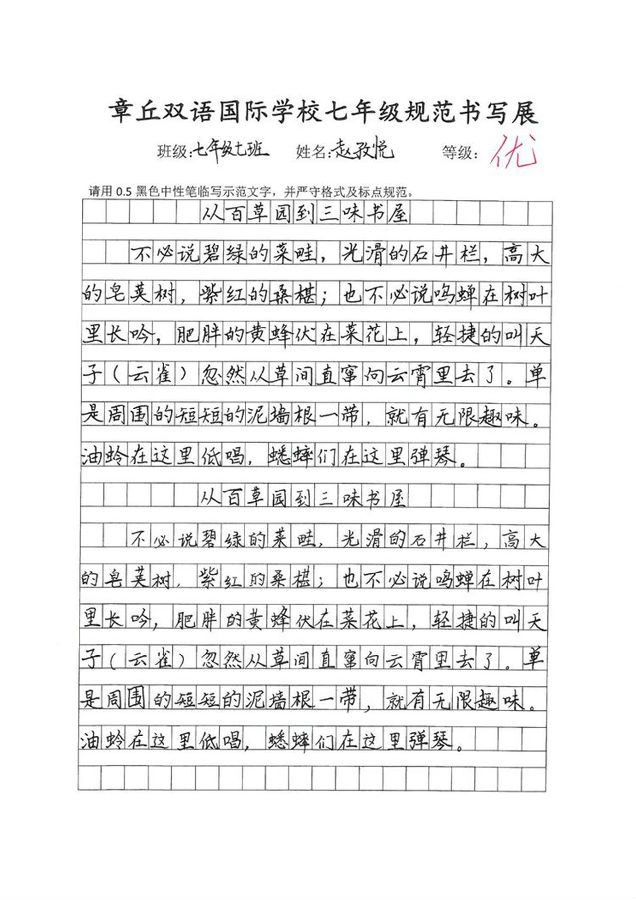 章丘双语国际学校七年级规范书写展
班级:七年级七班 姓名:赵孜悦 等级:优
请用 0.5 黑色中性笔临写示范文字，并严守格式及标点规范。
从百草园到三味书屋
不必说碧绿的菜畦，光滑的石井栏，高大
的皂荚树，紫红的桑椹；也不必说鸣蝉在树叶
里长吟，肥胖的黄蜂伏在菜花上，轻捷的叫天
子（云雀）忽然从草间直窜向云霄里去了。单
是周围的短短的泥墙根一带，就有无限趣味。
油蛉在这里低唱，蟋蟀们在这里弹琴。
从百草园到三味书屋
不必说碧绿的菜畦，光滑的石井栏，高大
的皂荚树，紫红的桑椹；也不必说鸣蝉在树叶
里长吟，肥胖的黄蜂伏在菜花上，轻捷的叫天
子（云雀）忽然从草间直窜向云霄里去了。单
是周围的短短的泥墙根一带，就有无限趣味。
油蛉在这里低唱，蟋蟀们在这里弹琴。